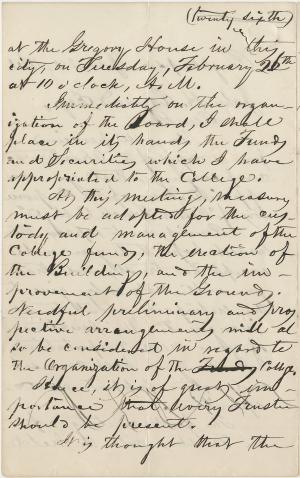 (twenty sixth)
at the Gregory House in this
city, on Tuesday, February 26th
at 10 o'clock, A.M.
Immediately on the organ-
ization of the Board, I shall
place in its hands the Funds
and Securities which I have
appropriated to the College.
At this meeting, measures
must be adopted for the cus-
tody and management of the
College funds, the erection of
the Buildings, and the im-
provement of the Grounds.
Needful preliminary and pros-
pective arrangements will al-
so be considered in regard to
the Organization of the College.
Hence, it is of great im
portance that every Trustee
should be present.
It is thought that the